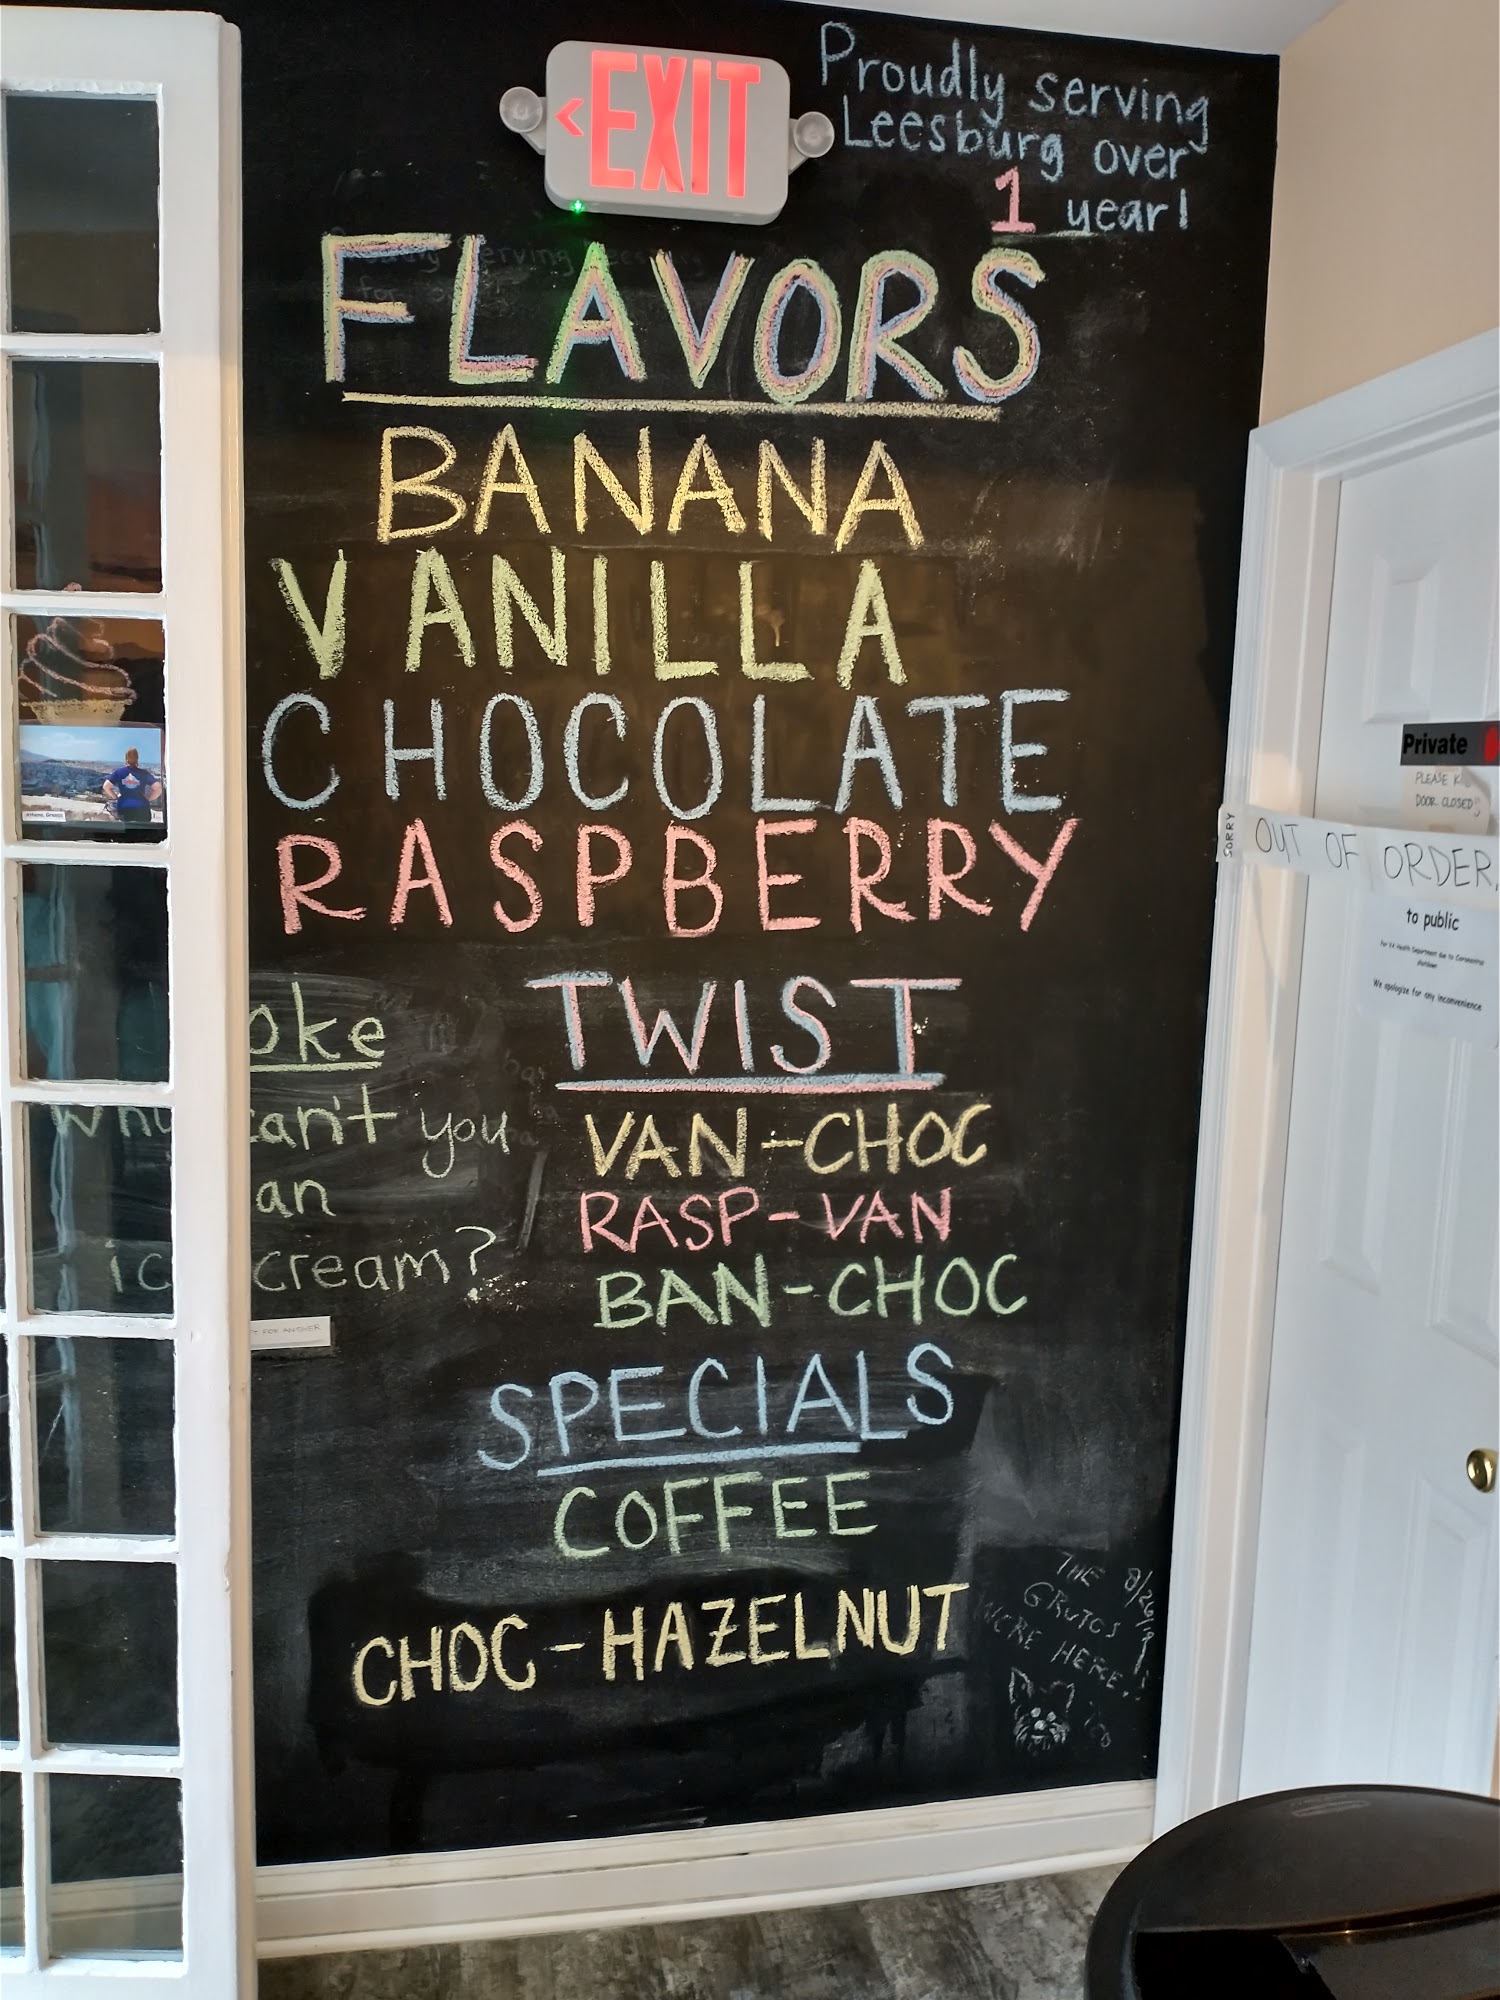 <EXIT
Proudly serving
Leesburg over
1 year!
FLAVORS
BANANA
VANILLA
CHOCOLATE
RASPBERRY
TWIST
VAN-CHOC
RASP-VAN
BAN-CHOC
SPECIALS
COFFEE
CHOC-HAZELNUT
oke
why can't you
an
ic cream?
FOR ANSWER
THE
GRUTOS
WERE HERE!
8/26/19
Private
PLEASE K
DOOR CLOSED
SORRY
OUT OF ORDER
to public
For VA Health Department due to Coronavirus
shutdown
We apologize for any inconvenience
Athens, Greece